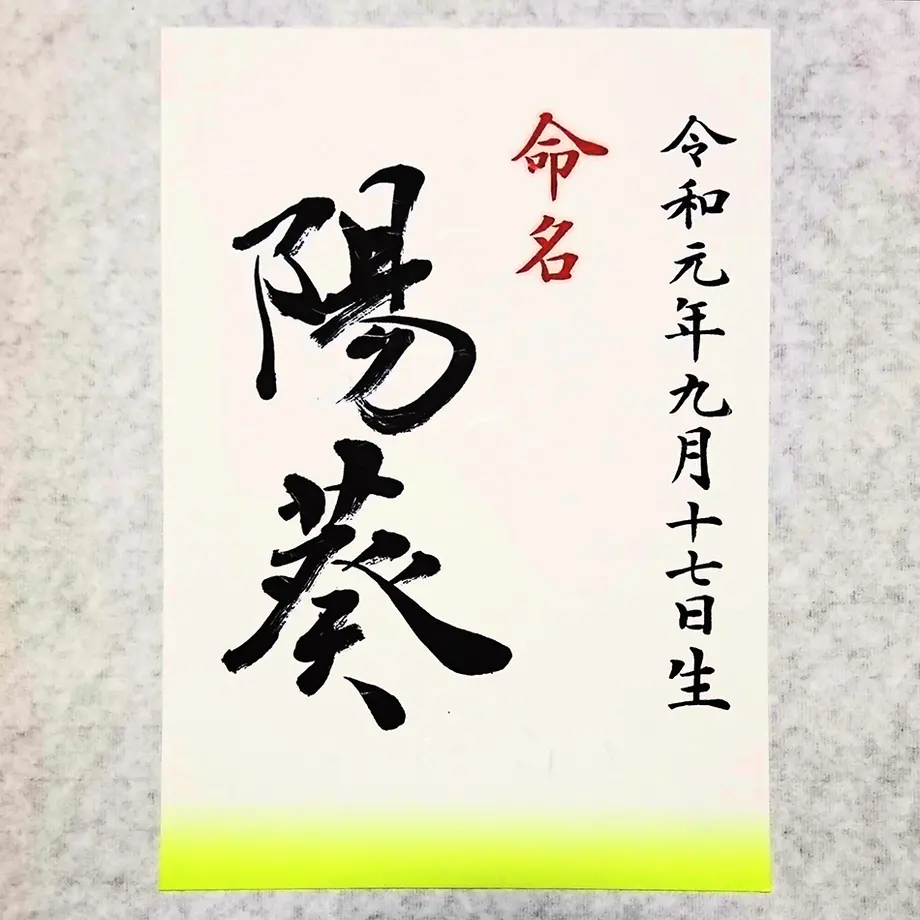 令和元年九月十七日生
命名
陽葵